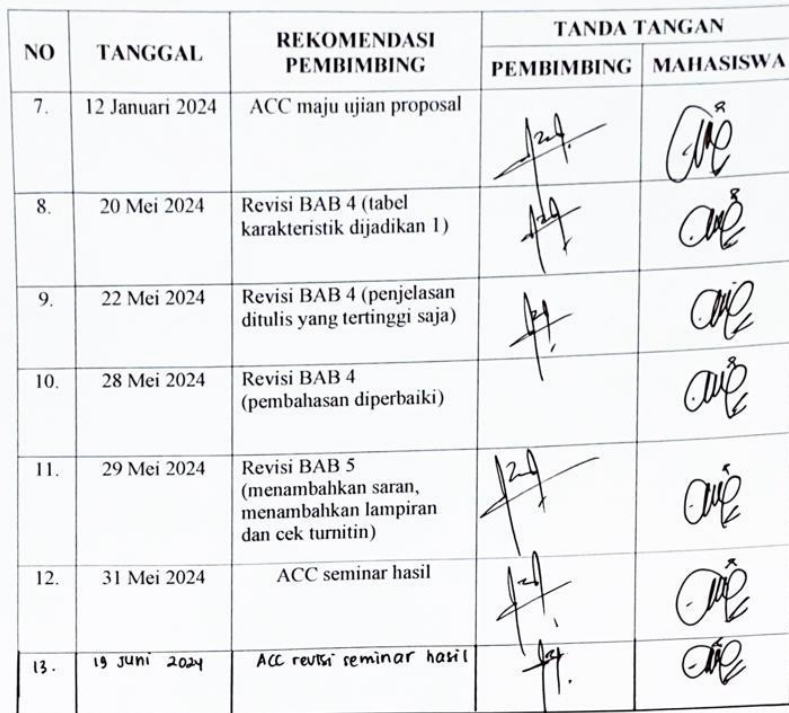 NO TANGGAL REKOMENDASI PEMBIMBING TANDA TANGAN
PEMBIMBING MAHASISWA
7. 12 Januari 2024 ACC maju ujian proposal
8. 20 Mei 2024 Revisi BAB 4 (tabel
karakteristik dijadikan 1)
9. 22 Mei 2024 Revisi BAB 4 (penjelasan
ditulis yang tertinggi saja)
10. 28 Mei 2024 Revisi BAB 4
(pembahasan diperbaiki)
11. 29 Mei 2024 Revisi BAB 5
(menambahkan saran,
menambahkan lampiran
dan cek turnitin)
12. 31 Mei 2024 ACC seminar hasil
13. 19 Juni 2024 ACC revisi seminar hasil